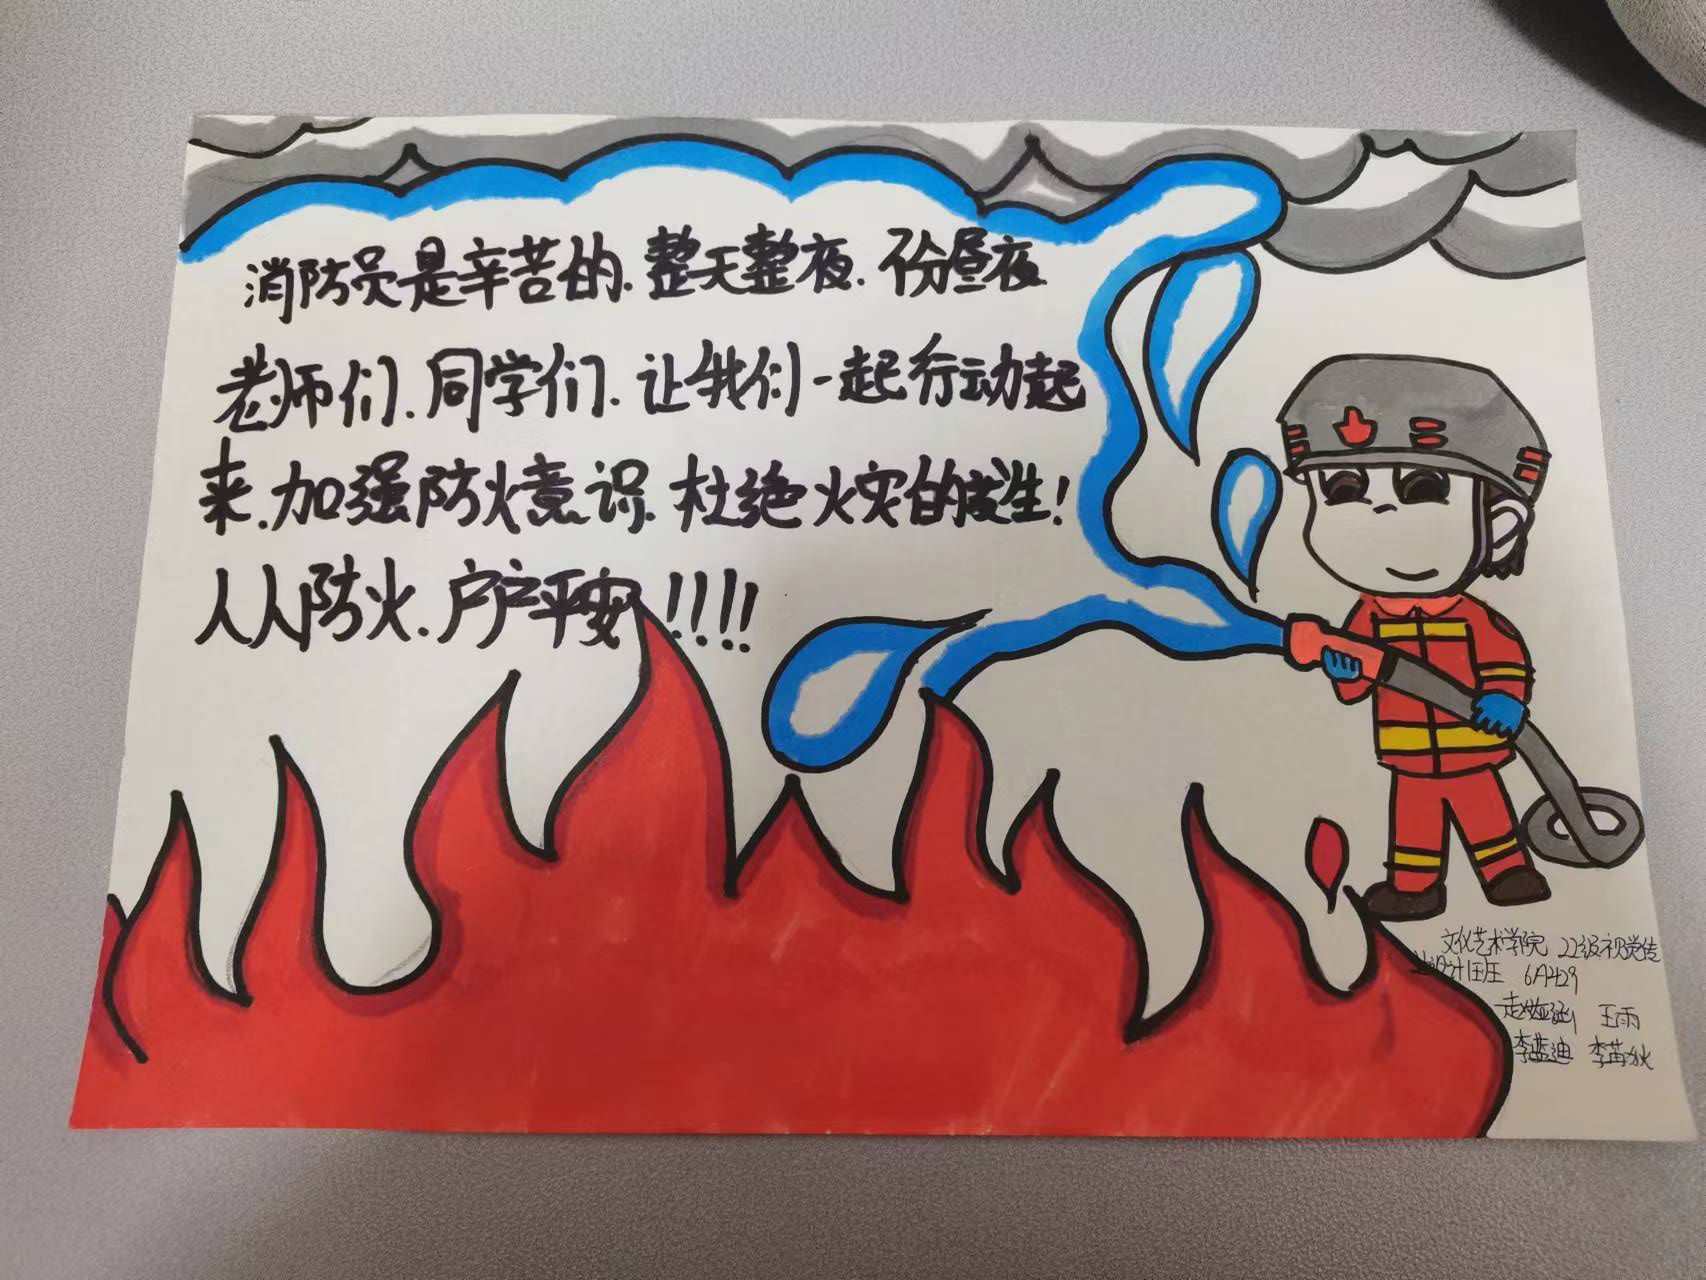 消防员是辛苦的.整天整夜.不分昼夜.
老师们.同学们.让我们一起行动起
来.加强防火意识.杜绝火灾的发生!
人人防火.户户平安!!!!
文化艺术学院 22级视觉传
达设计1班 6A429
王雨
李蓝迪